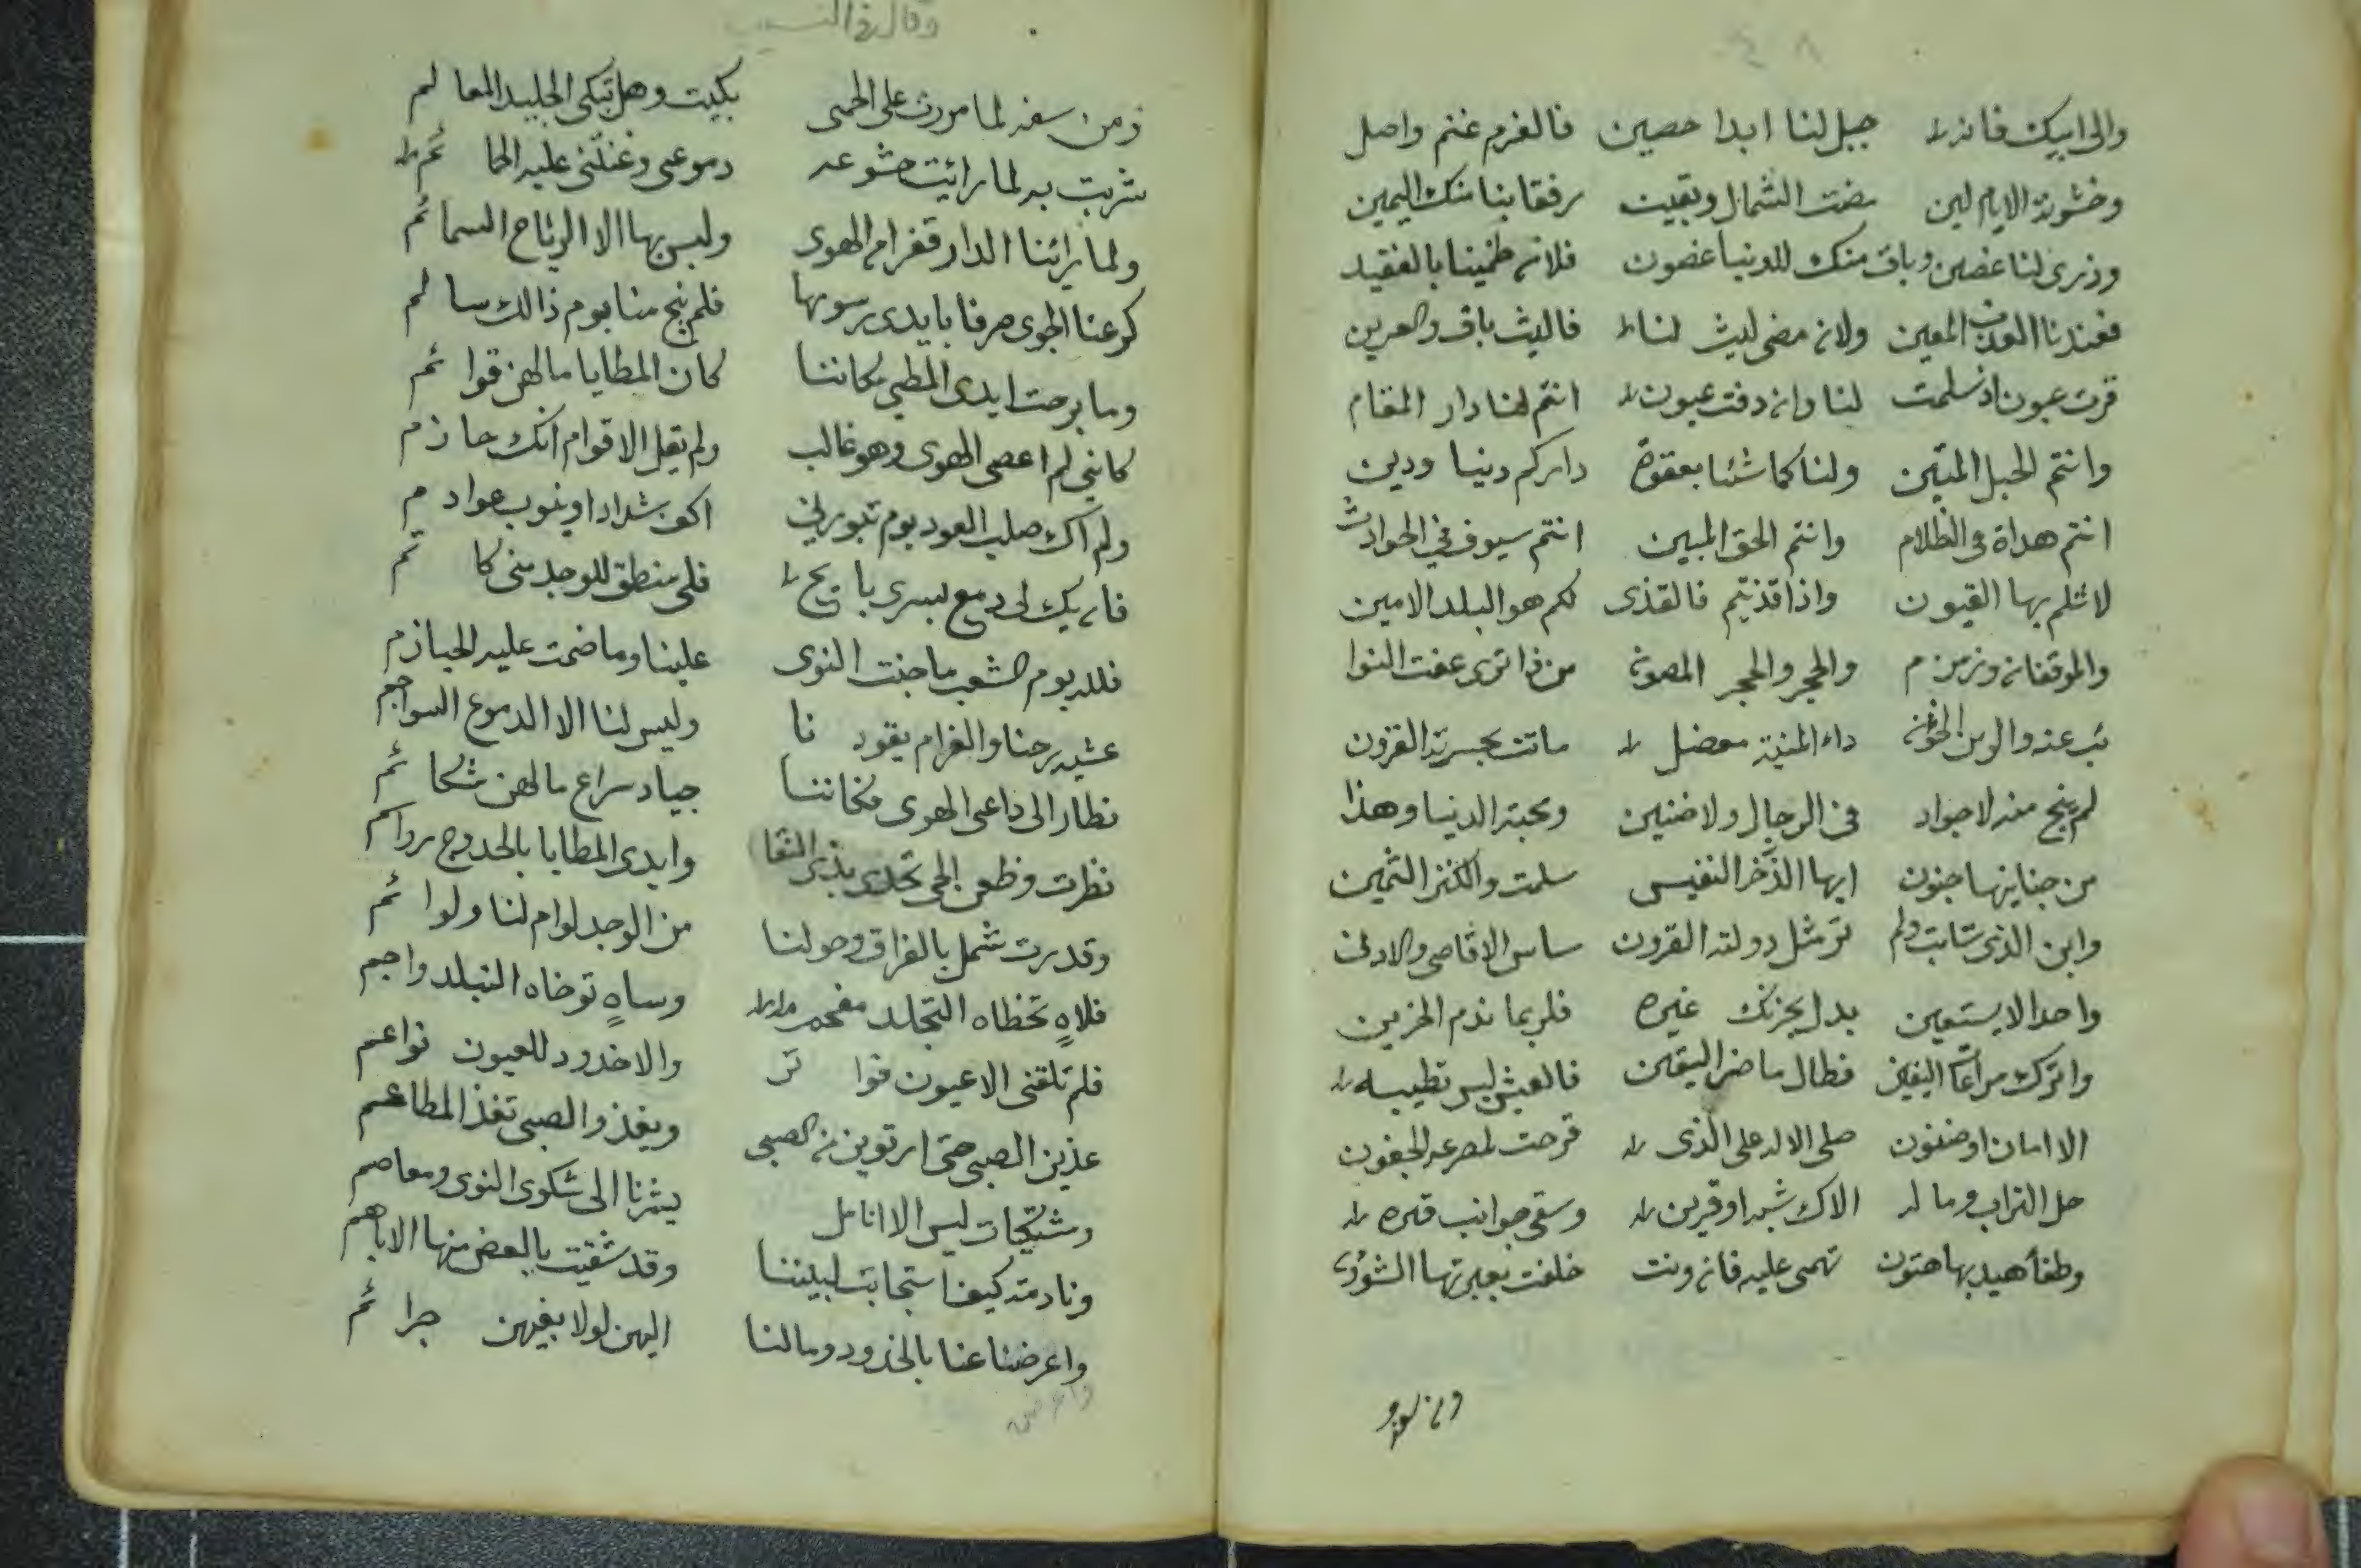 والى ابيك فانه جبل لنا ابدا حصين فالغرم غنم واصل
وخشونة الايام لين مضت الشمال وبقيت رفقا بنا منك اليمين
وذرى لنا غصين وباق منك للدنيا غصون فلان ظمينا بالفقيد
فعندنا العذب المعين ولان مضى ليث لنا فاليث باق والعرين
قرت عيون اذ سلمت لنا وان دفت عيون انتم لنا دار المقام
وانتم الحبل المتين ولنا كما شئنا بعقوة داركم دنيا ودين
انتم هداة فى الظلام وانتم الحق المبين انتم سيوف في الحوادث
لا تثلم بها القيون واذا قذيتم فالقذى لكم هو البلد الامين
والموقفان وزمزم والحجر والحجر المصون من ذا ترى عفت النوا
ئب عنه والزمن الخؤن داء المنية معضل ماتت بحسرته القرون
لم ينج منه لا جواد فى الرجال ولا ضنين ومحبة الدنيا وهذا
من جنايتها جنون ايها الذخر النفيس سلمت والكنز الثمين
وابن الذى شابت ولم تر مثل دولته القرون ساس الاقاصى والادنى
واحدا لا يستعين بدل يحزنك غيره فلربما ندم الحزين
واترك مراعاة اليقين فطال ما ضر اليقين فالعيش ليس تطيبه
الا امان او ضنون صلى الاله على الذى قرحت لمصرعه الجفون
حل التراب وما له الاك شبه او قرين وسقى جوانب قبره
وطفأ هيدبها هتون تهمى عليه فان ونت خلفت بعبرتها الشؤن
وقال فى النسيب
ومن سفه لما مررت على الحمى بكيت وهل تبكى الجليد المعالم
شربت به لما رائيت خشوعه دموعى وغنتنى عليه الحمائم
ولما رائنا الدار قفرا من الهوى وليس بها الا الرياح السمائم
كرعنا الجوى صرفا بايدى رسومها فلم ينج منا يوم ذالك سالم
وما برحت ايدى المطي مكاننا كان المطايا ما لهن قوائم
كانني لم اعص الهوى وهو غالب ولم يقل الاقوام انك حازم
ولم اك صلب العود يوم تبورني اكف شداد او نيوب عوادم
فان يك لى دمع بسرى بايح فلى منطق للوجد منى كاتم
فلله يوم الشعب ما جنت النوى علينا وما ضمت عليه الحيازم
عشيه رحنا والغرام يقودنا وليس لنا الا الدموع السواجم
نطار الى داعى الهوى فكاننا جياد سراع ما لهن شكائم
نظرت وظعن الحى تحدى بذى النقا وايدى المطايا بالحدوج رواسم
وقد رت شمل بالفراق وحولنا من الوجد لوام لنا ولوائم
فلاهٍ تخطاه التجلد مفحم وساهٍ توخاه التبلد واجم
فلم تلقنى الا عيون فواتر والا خدود للعيون نواعم
غذين الصبى حتى ارتوين من الصبى ويغذو الصبى تغذ المطاعم
ومشتكيات ليس الا انامل يشرنا الى شكوى النوى ومعاصم
ونادمته كيف استجابت لبيننا وقد شقيت بالعض منها الاباهم
واعرضنا عنا بالخدود وما لنا اليهن لولا بغيهن جرائم
واعرضن